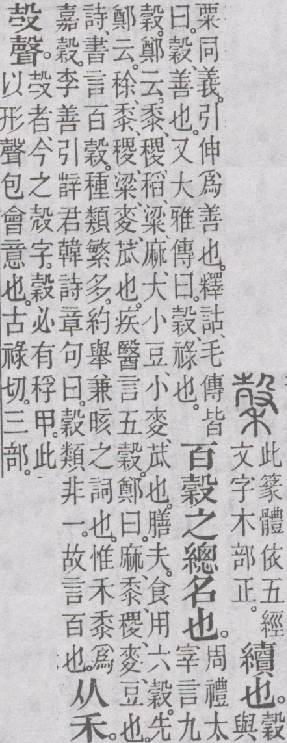 榖
此篆體依五經
文字木部正。
續也。
穀
與
粟同義。引伸爲善也。釋詁、毛傳皆
曰。穀、善也。又大雅傳曰。穀、祿也。
百穀之總名也。
周禮太
宰言九
穀。鄭云。黍、稷、稻、粱、麻、大小豆、小麥、苽也。膳夫。食用六穀。先
鄭云。稌、黍、稷、粱、麥、苽也。疾醫言五穀。鄭曰。麻、黍、稷、麥、豆也。
詩、書言百穀。種類繁多。約舉兼晐之詞也。惟禾黍爲
嘉穀。李善引辥君韓詩章句曰。穀類非一。故言百也。
从禾。
𣪊聲。
𣪊者今之殼字。穀必有稃甲。此
以形聲包會意也。古祿切。三部。